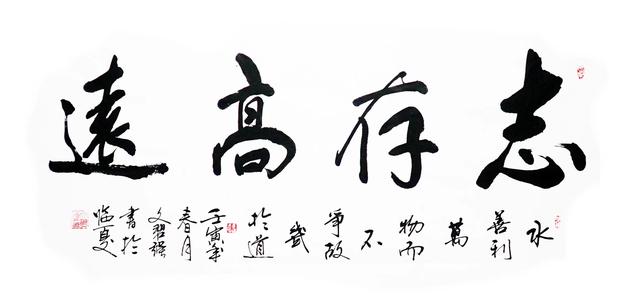 志存高遠
水
善利
萬
物而
不
爭故
幾
於道
壬寅年
春月
文
書於
临夏